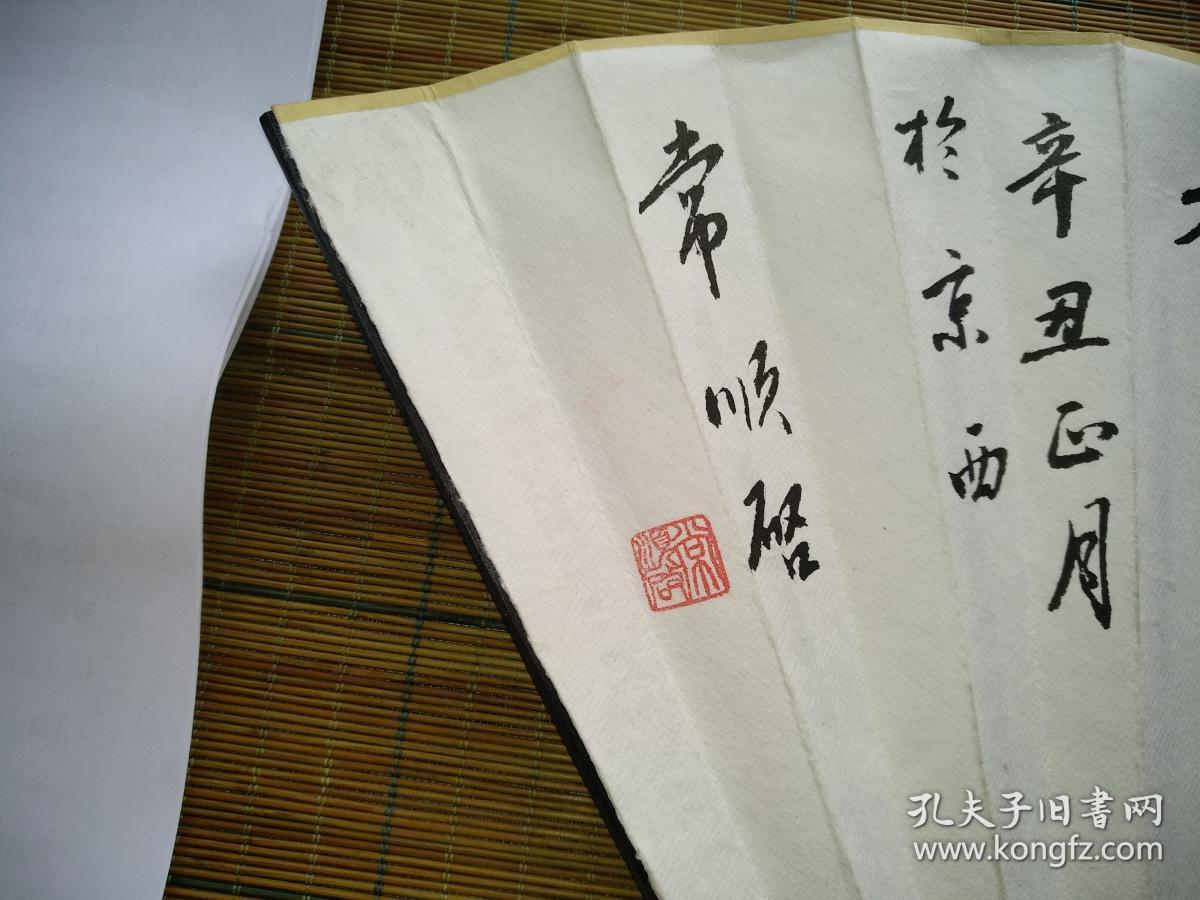 辛丑正月
於京西
常顺啓
孔夫子旧書网
www.kongfz.com